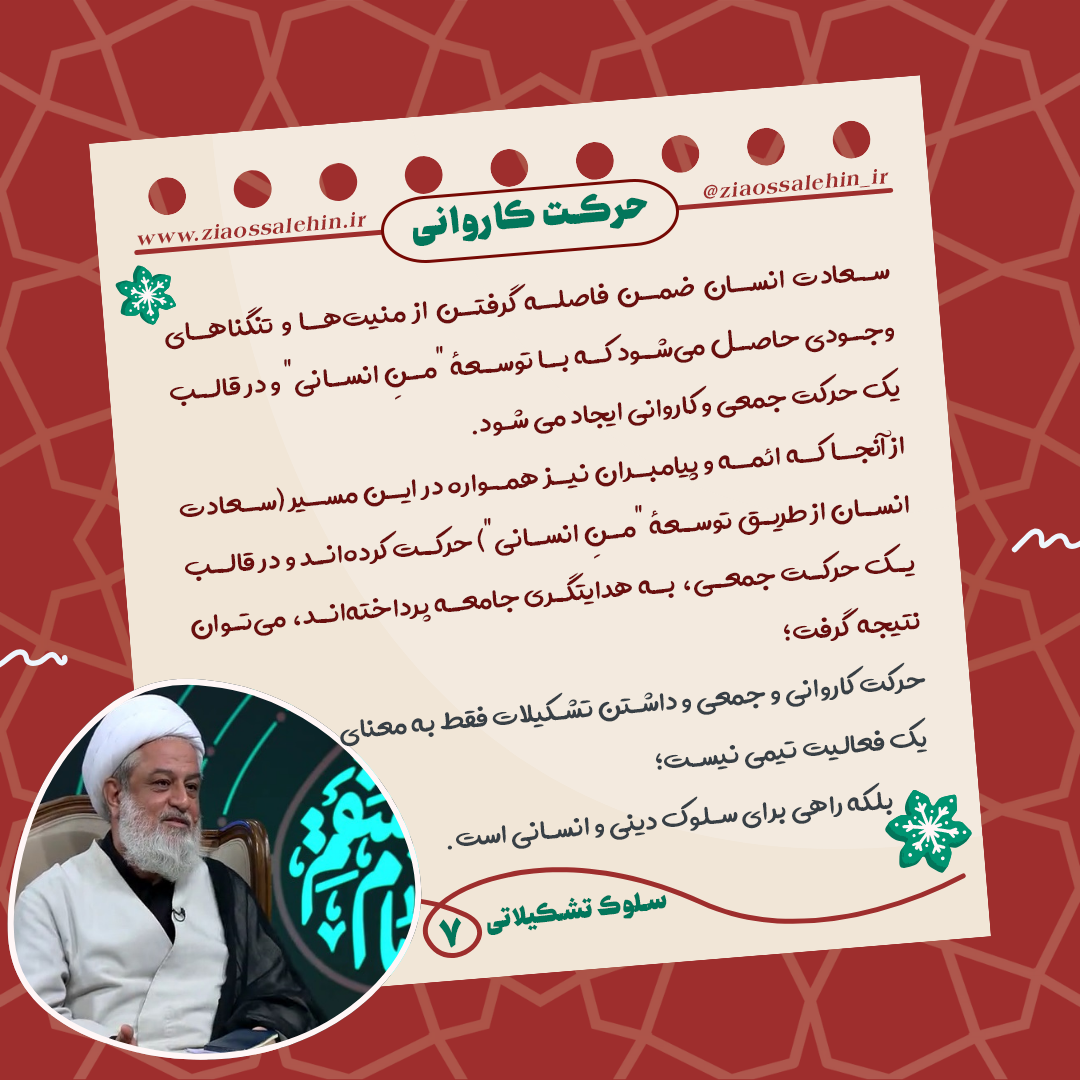 @ziaossalehin_ir
www.ziaossalehin.ir
حرکت کاروانی
سعادت انسان ضمن فاصله گرفتن از منیت‌ها و تنگناهای
وجودی حاصل می‌شود که با توسعهٔ "منِ انسانی" و در قالب
یک حرکت جمعی و کاروانی ایجاد می شود.
از آنجا که ائمه و پیامبران نیز همواره در این مسیر (سعادت
انسان از طریق توسعهٔ "منِ انسانی") حرکت کرده‌اند و در قالب
یک حرکت جمعی، به هدایتگری جامعه پرداخته‌اند، می‌توان
نتیجه گرفت؛
حرکت کاروانی و جمعی و داشتن تشکیلات فقط به معنای
یک فعالیت تیمی نیست؛
بلکه راهی برای سلوک دینی و انسانی است.
سلوک تشکیلاتی
۷